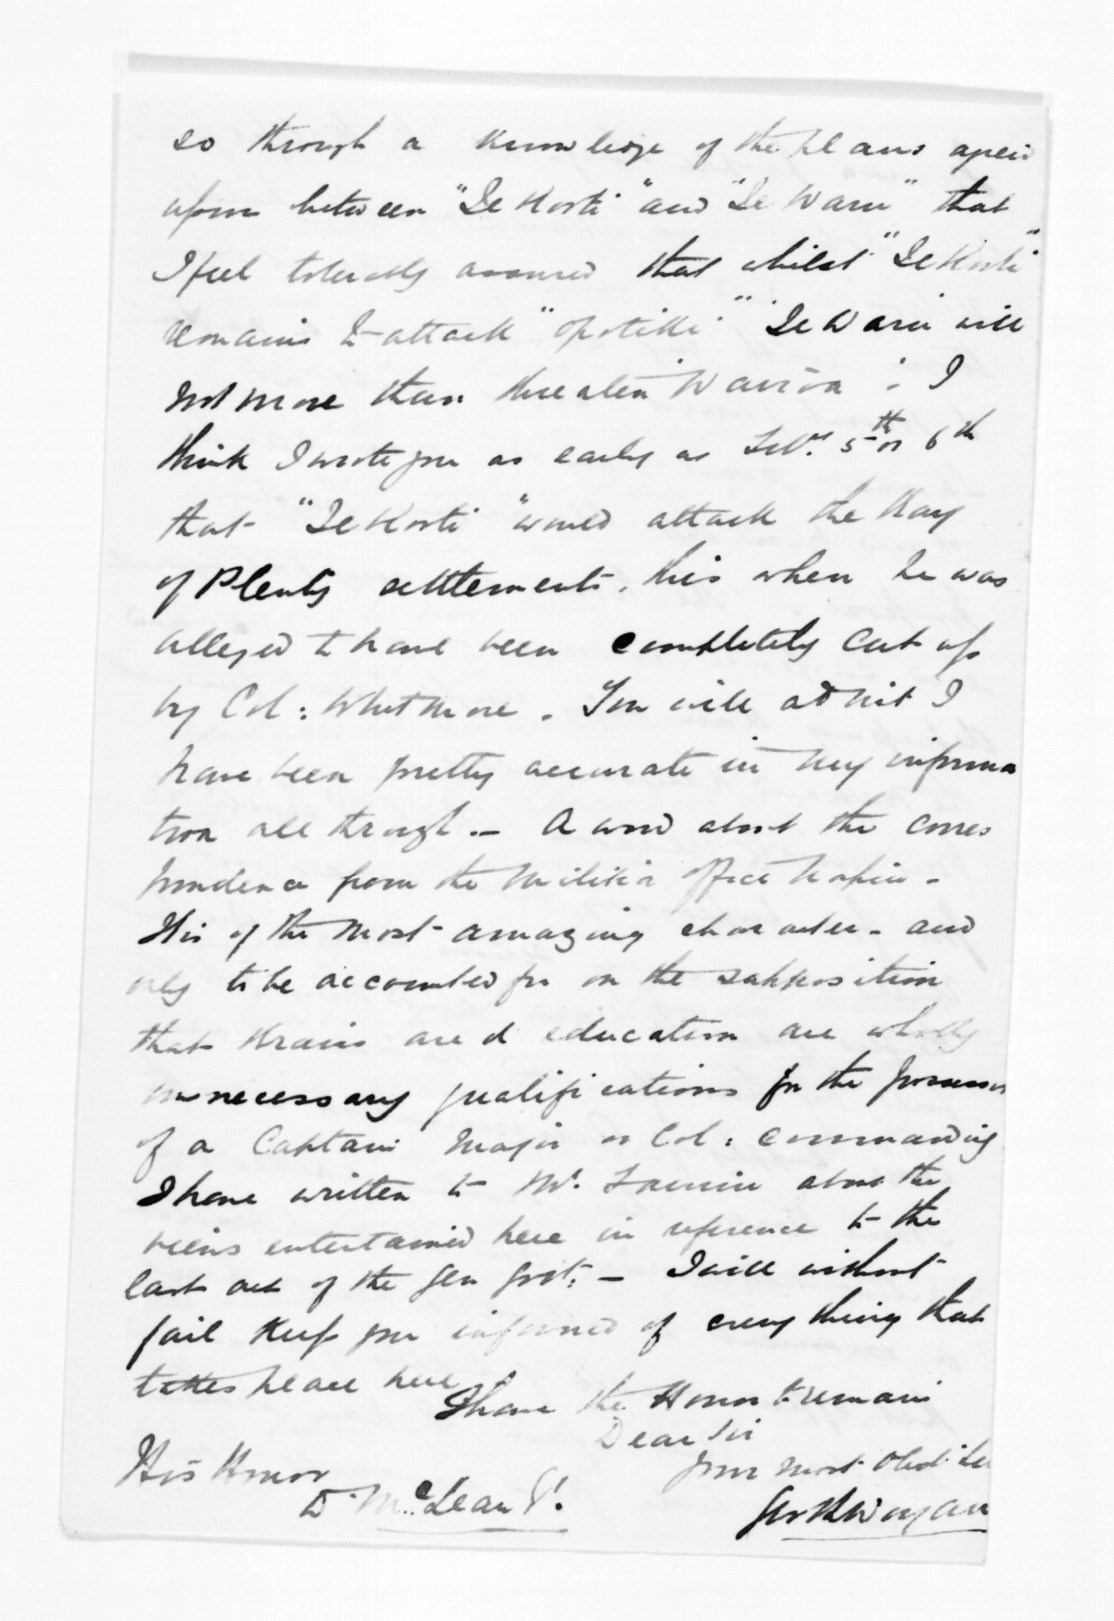 so through a knowledge of the plans agreed
upon between "Te Kooti" and "Te Waru" that
I feel tolerably assured that whilst "Te Kooti"
remains to attack "Opotiki" "Te Waru will
not more than threaten Wairoa. I
think I wrote you as early as Feby. 5th or 6th
that "Te Kooti" would attack the Bay
of Plenty settlements, this when he was
alleged to have been completely cut up
by Col: Whitmore. You will admit I
have been pretty accurate in my informa
tion all through.— A word about the corres
pondence from the Militia Office Napier.
It is of the most amazing character. and
only to be accounted for on the supposition
that brains and education are wholly
unnecessary qualifications for the possessor
of a Captain Major or Col: commanding
I have written to Mr. about the
views entertained here in reference to the
last act of the Gen Govt:— I will without
fail keep you informed of every thing that
takes place here
I have the Honor to remain
Dear Sir
Your most Obdt
His Honor
D. McLean
Wyman